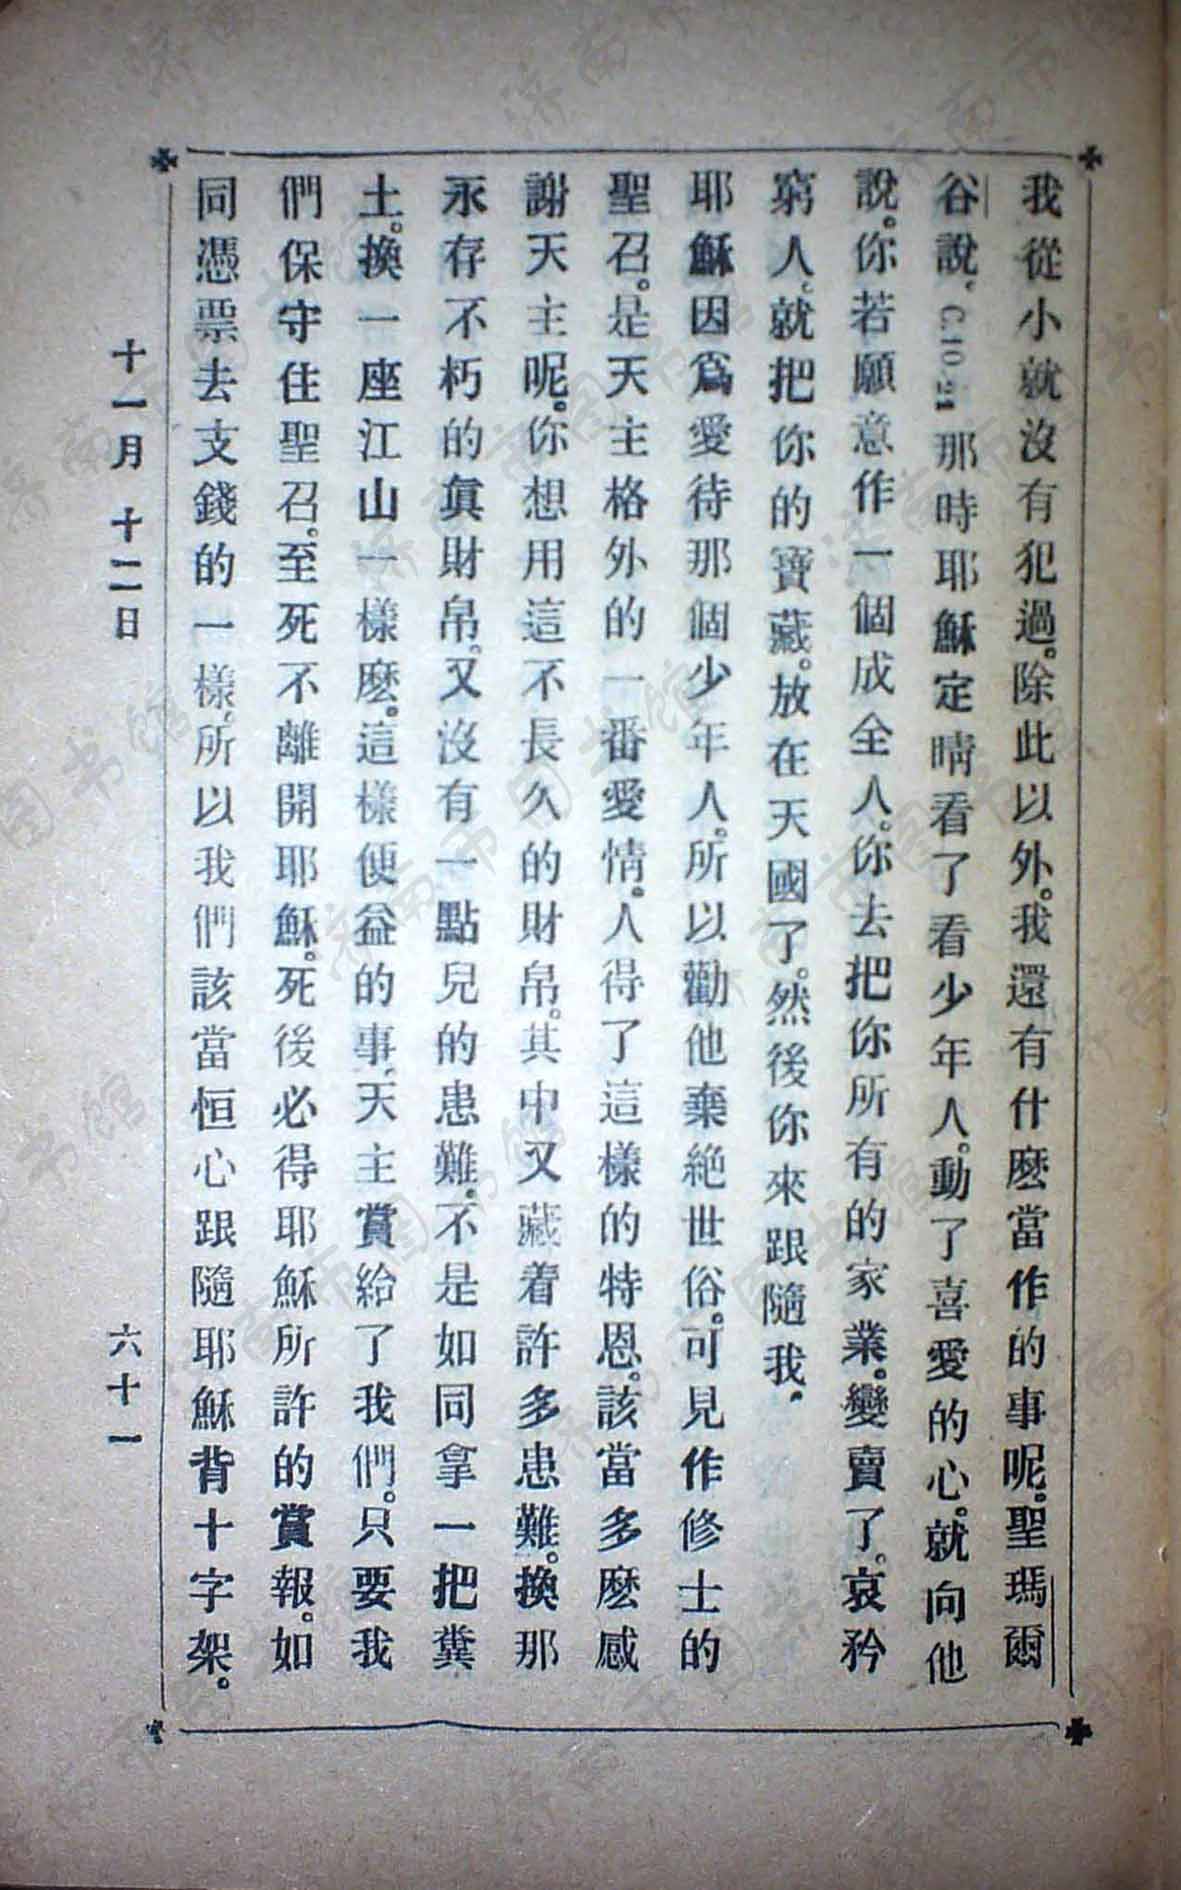 我從小就沒有犯過。除此以外。我還有什麽當作的事呢。聖瑪爾
谷說。C.10.21那時耶穌定睛看了看少年人。動了喜愛的心。就向他
說。你若願意作一個成全人。你去把你所有的家業。變賣了。哀矜
窮人。就把你的寶藏。放在天國了。然後你來跟隨我。
耶穌因爲愛待那個少年人。所以勸他棄絶世俗。可見作修士的
聖召。是天主格外的一番愛情。人得了這樣的特恩。該當多麽感
謝天主呢。你想用這不長久的財帛。其中又藏着許多患難。換那
永存不朽的眞財帛。又沒有一點兒的患難。不是如同拿一把糞
土。換一座江山一樣麽。這樣便益的事。天主賞給了我們。只要我
們保守住聖召。至死不離開耶穌。死後必得耶穌所許的賞報。如
同憑票去支錢的一樣。所以我們該當恒心跟隨耶穌背十字架。
十一月 十二日 六十一
济南市图书馆